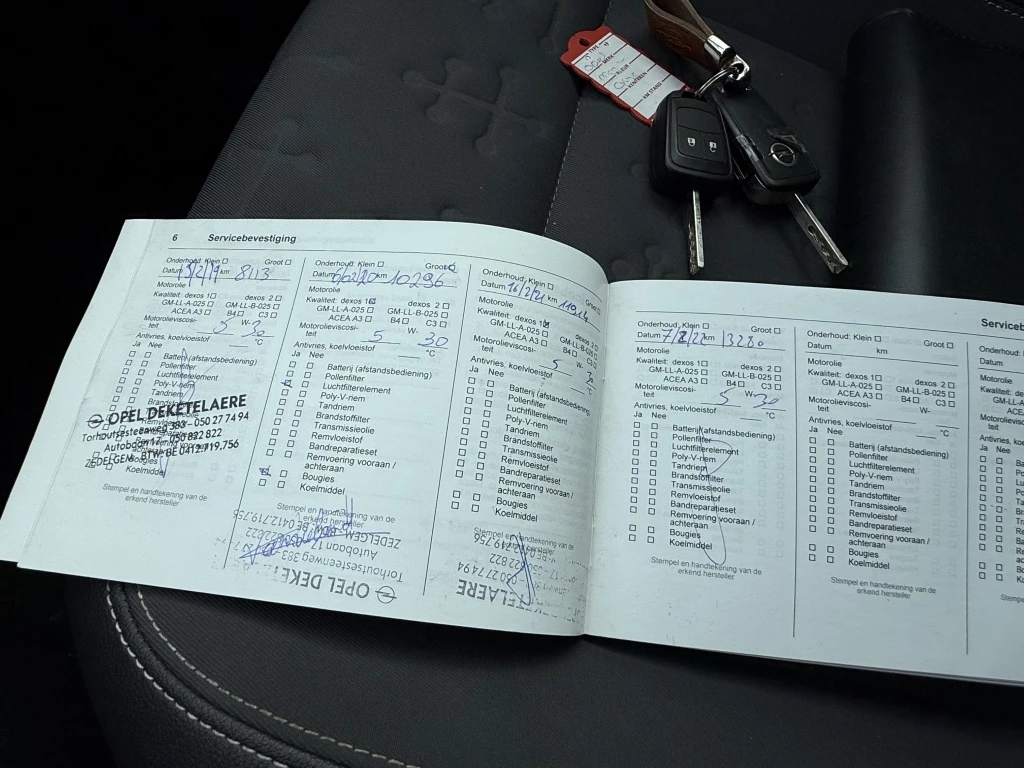 TYPE
Opel
MERK
KLEUR
KENTEKEN
KM STAND
6 Servicebevestiging
Onderhoud: Klein ☐ Groot ☐
Datum km 8113
Motorolie
Kwaliteit: dexos 1 ☐ dexos 2 ☐
GM-LL-A-025 ☐ GM-LL-B-025 ☐
ACEA A3 ☐ B4 ☐ C3 ☐
Motorolieviscosi- 5 W- 30
teit
Antivries, koelvloeistof °C
Ja Nee
Batterij (afstandsbediening)
Pollenfilter
Luchtfilterelement
Poly-V-riem
Tandriem
OPEL DEKETELAERE
Torhoutsesteenweg 383 - 050 27 74 94
Autobaan 17 - 050 822 822
ZEDELGEM BTW: BE 0412.719.756
Bougies
Koelmiddel
Stempel en handtekening van de
erkend hersteller
Onderhoud: Klein ☐ Groot ☑
Datum km 10296
Motorolie
Kwaliteit: dexos 1 ☑ dexos 2 ☐
GM-LL-A-025 ☐ GM-LL-B-025 ☐
ACEA A3 ☐ B4 ☐ C3 ☐
Motorolieviscosi- 5 W- 30
teit
Antivries, koelvloeistof °C
Ja Nee
Batterij (afstandsbediening)
Pollenfilter
Luchtfilterelement
Poly-V-riem
Tandriem
Brandstoffilter
Transmissieolie
Remvloeistof
Bandreparatieset
Remvoering vooraan /
achteraan
Bougies
Koelmiddel
Stempel en handtekening van de
erkend hersteller
OPEL DEKE
Torhoutsesteenweg 383
Autobaan 17
ZEDELGEM
BE 0412.719.756
Onderhoud: Klein ☐ Groot
Datum 16/2/21 km 11914
Motorolie
Kwaliteit: dexos 1 ☑ dexos 2 ☐
GM-LL-A-025 ☐ GM-LL-B-025 ☐
ACEA A3 ☐ B4 ☐ C3 ☐
Motorolieviscosi- 5 W- 30
teit
Antivries, koelvloeistof °C
Ja Nee
Batterij (afstandsbediening)
Pollenfilter
Luchtfilterelement
Poly-V-riem
Tandriem
Brandstoffilter
Transmissieolie
Remvloeistof
Bandreparatieset
Remvoering vooraan /
achteraan
Bougies
Koelmiddel
Stempel en handtekening van de
TELAERE
050 27 74 94
822 822
Onderhoud: Klein ☐ Groot ☐
Datum km 13280
Motorolie
Kwaliteit: dexos 1 ☐ dexos 2 ☐
GM-LL-A-025 ☐ GM-LL-B-025 ☐
ACEA A3 ☐ B4 ☐ C3 ☐
Motorolieviscosi- 5 W- 30
teit
Antivries, koelvloeistof °C
Ja Nee
Batterij (afstandsbediening)
Pollenfilter
Luchtfilterelement
Poly-V-riem
Tandriem
Brandstoffilter
Transmissieolie
Remvloeistof
Bandreparatieset
Remvoering vooraan /
achteraan
Bougies
Koelmiddel
Stempel en handtekening van de
erkend hersteller
Onderhoud: Klein ☐ Groot ☐
Datum km
Motorolie
Kwaliteit: dexos 1 ☐ dexos 2 ☐
GM-LL-A-025 ☐ GM-LL-B-025 ☐
ACEA A3 ☐ B4 ☐ C3 ☐
Motorolieviscosi- W-
teit
Antivries, koelvloeistof °C
Ja Nee
Batterij (afstandsbediening)
Pollenfilter
Luchtfilterelement
Poly-V-riem
Tandriem
Brandstoffilter
Transmissieolie
Remvloeistof
Bandreparatieset
Remvoering vooraan /
achteraan
Bougies
Koelmiddel
Stempel en handtekening van de
erkend hersteller
Serviceb
Onderhoud:
Datum
Motorolie
Kwaliteit: d
GM-LL-A
ACE
Motorolievi
teit
Antivries, k
Ja Nee
Stempe